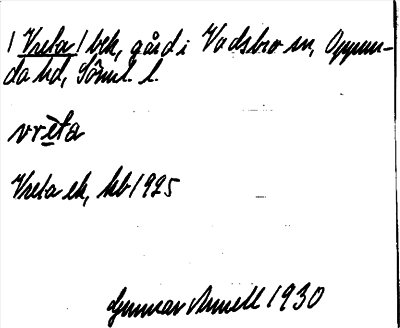 1 Vreta 1 bek, gård i Vadsbro sn, Oppun-
da hd, Söml. l.
vrèta
Vreta ek, kb 1925
Gunnar Arnell 1930